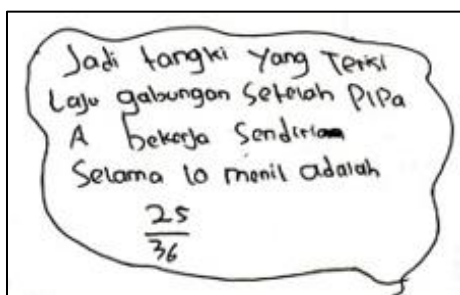 Jadi tangki yang Terisi
Laju gabungan Setelah PiPa
A bekerja Sendirian
Selama 10 menit adalah
25
36